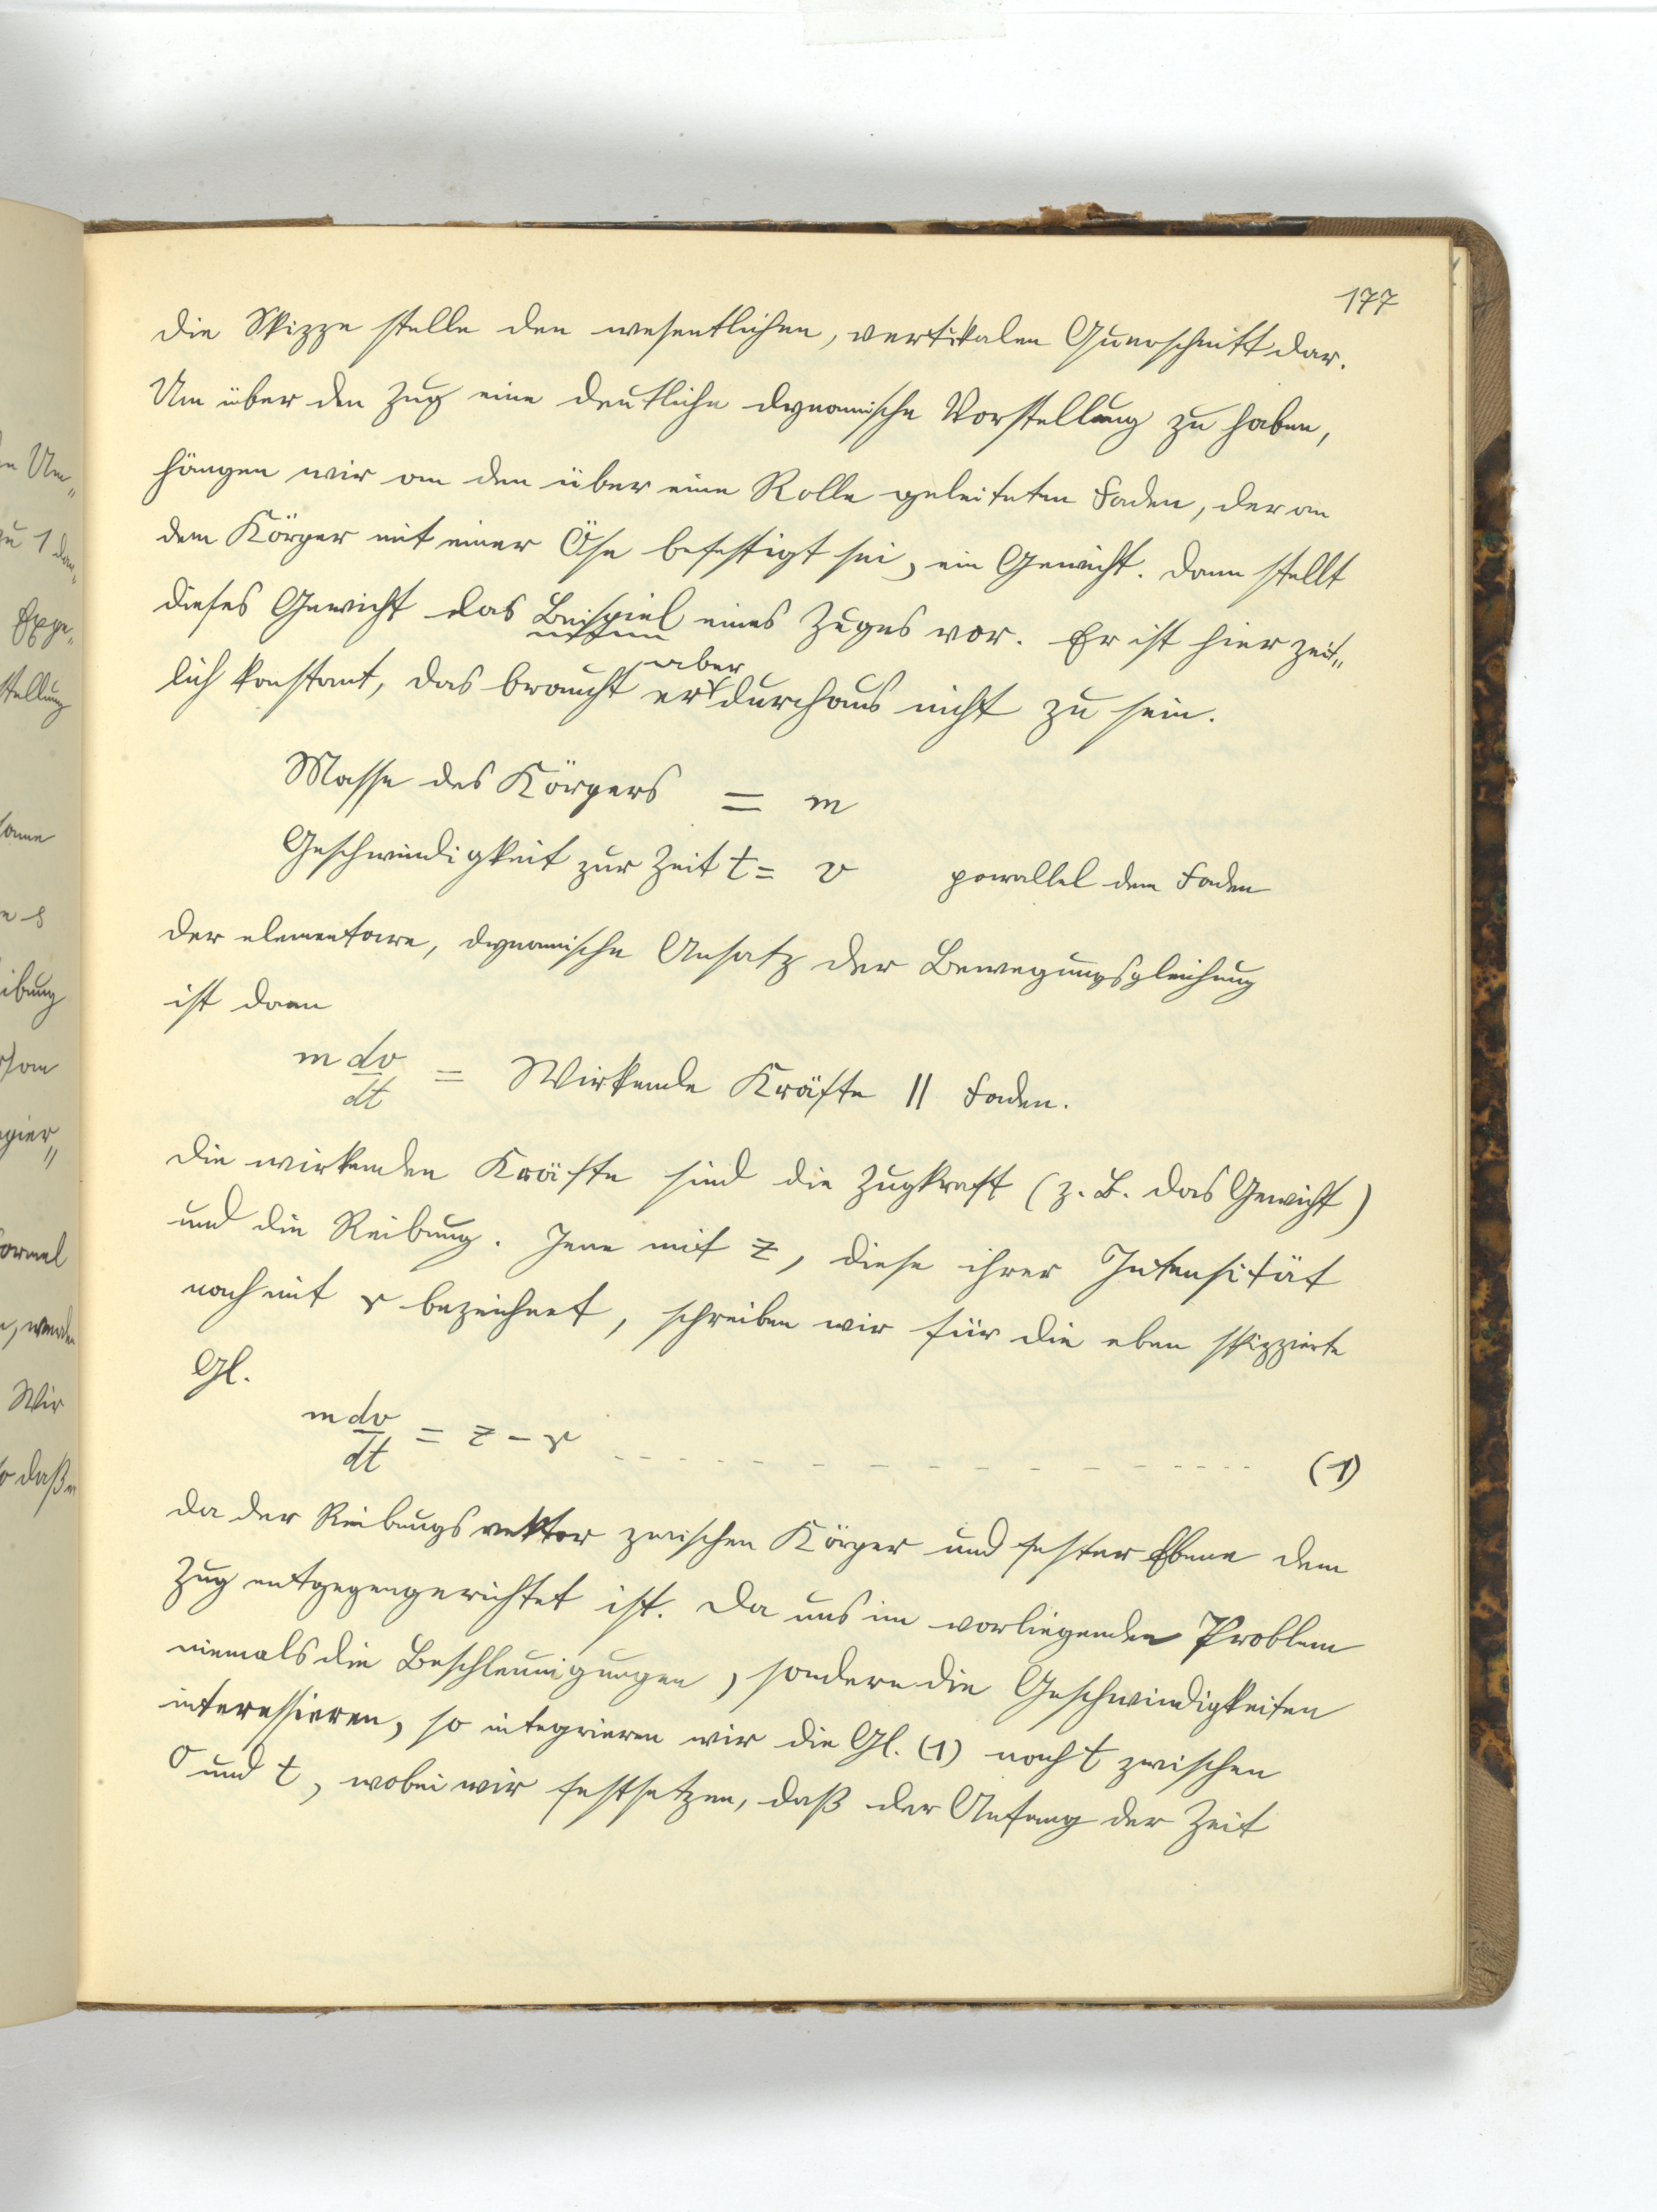 177
Die Skizze stelle den wesentlichen, vertikalen Querschnitt dar.
Um über den Zug eine deutliche dynamische Vorstellung zu haben,
hängen wir an den über eine Rolle geleiteten Faden, der an
dem Körper mit einer Öse befestigt sei, ein Gewicht. Dann stellt
dieses Gewicht das Beispiel eines Zuges vor. Er ist hier zeit„
aber
lich konstant, das braucht er durchaus nicht zu sein.
Masse des Körpers = m
Geschwindigkeit zur Zeit t = v parallel dem Faden
Der elementare, dynamische Ansatz der Bewegungsgleichung
ist dann
m dv/dt = Wirkende Kräfte || Faden.
Die wirkenden Kräfte sind die Zugkraft (z. B. das Gewicht)
und die Reibung. Jene mit z, diese ihrer Intensität
nach mit r bezeichnet, schreiben wir für die eben skizzierte
Gl.
m dv/dt = z – r - - - - - - - - - - - - - - - - (1)
da der Reibungsvektor zwischen Körper und fester Ebene dem
Zug entgegengerichtet ist. Da uns im vorliegenden Problem
niemals die Beschleunigungen, sondern die Geschwindigkeiten
interessieren, so integrieren wir die Gl. (1) nach t zwischen
0 und t, wobei wir festsetzen, daß der Anfang der Zeit